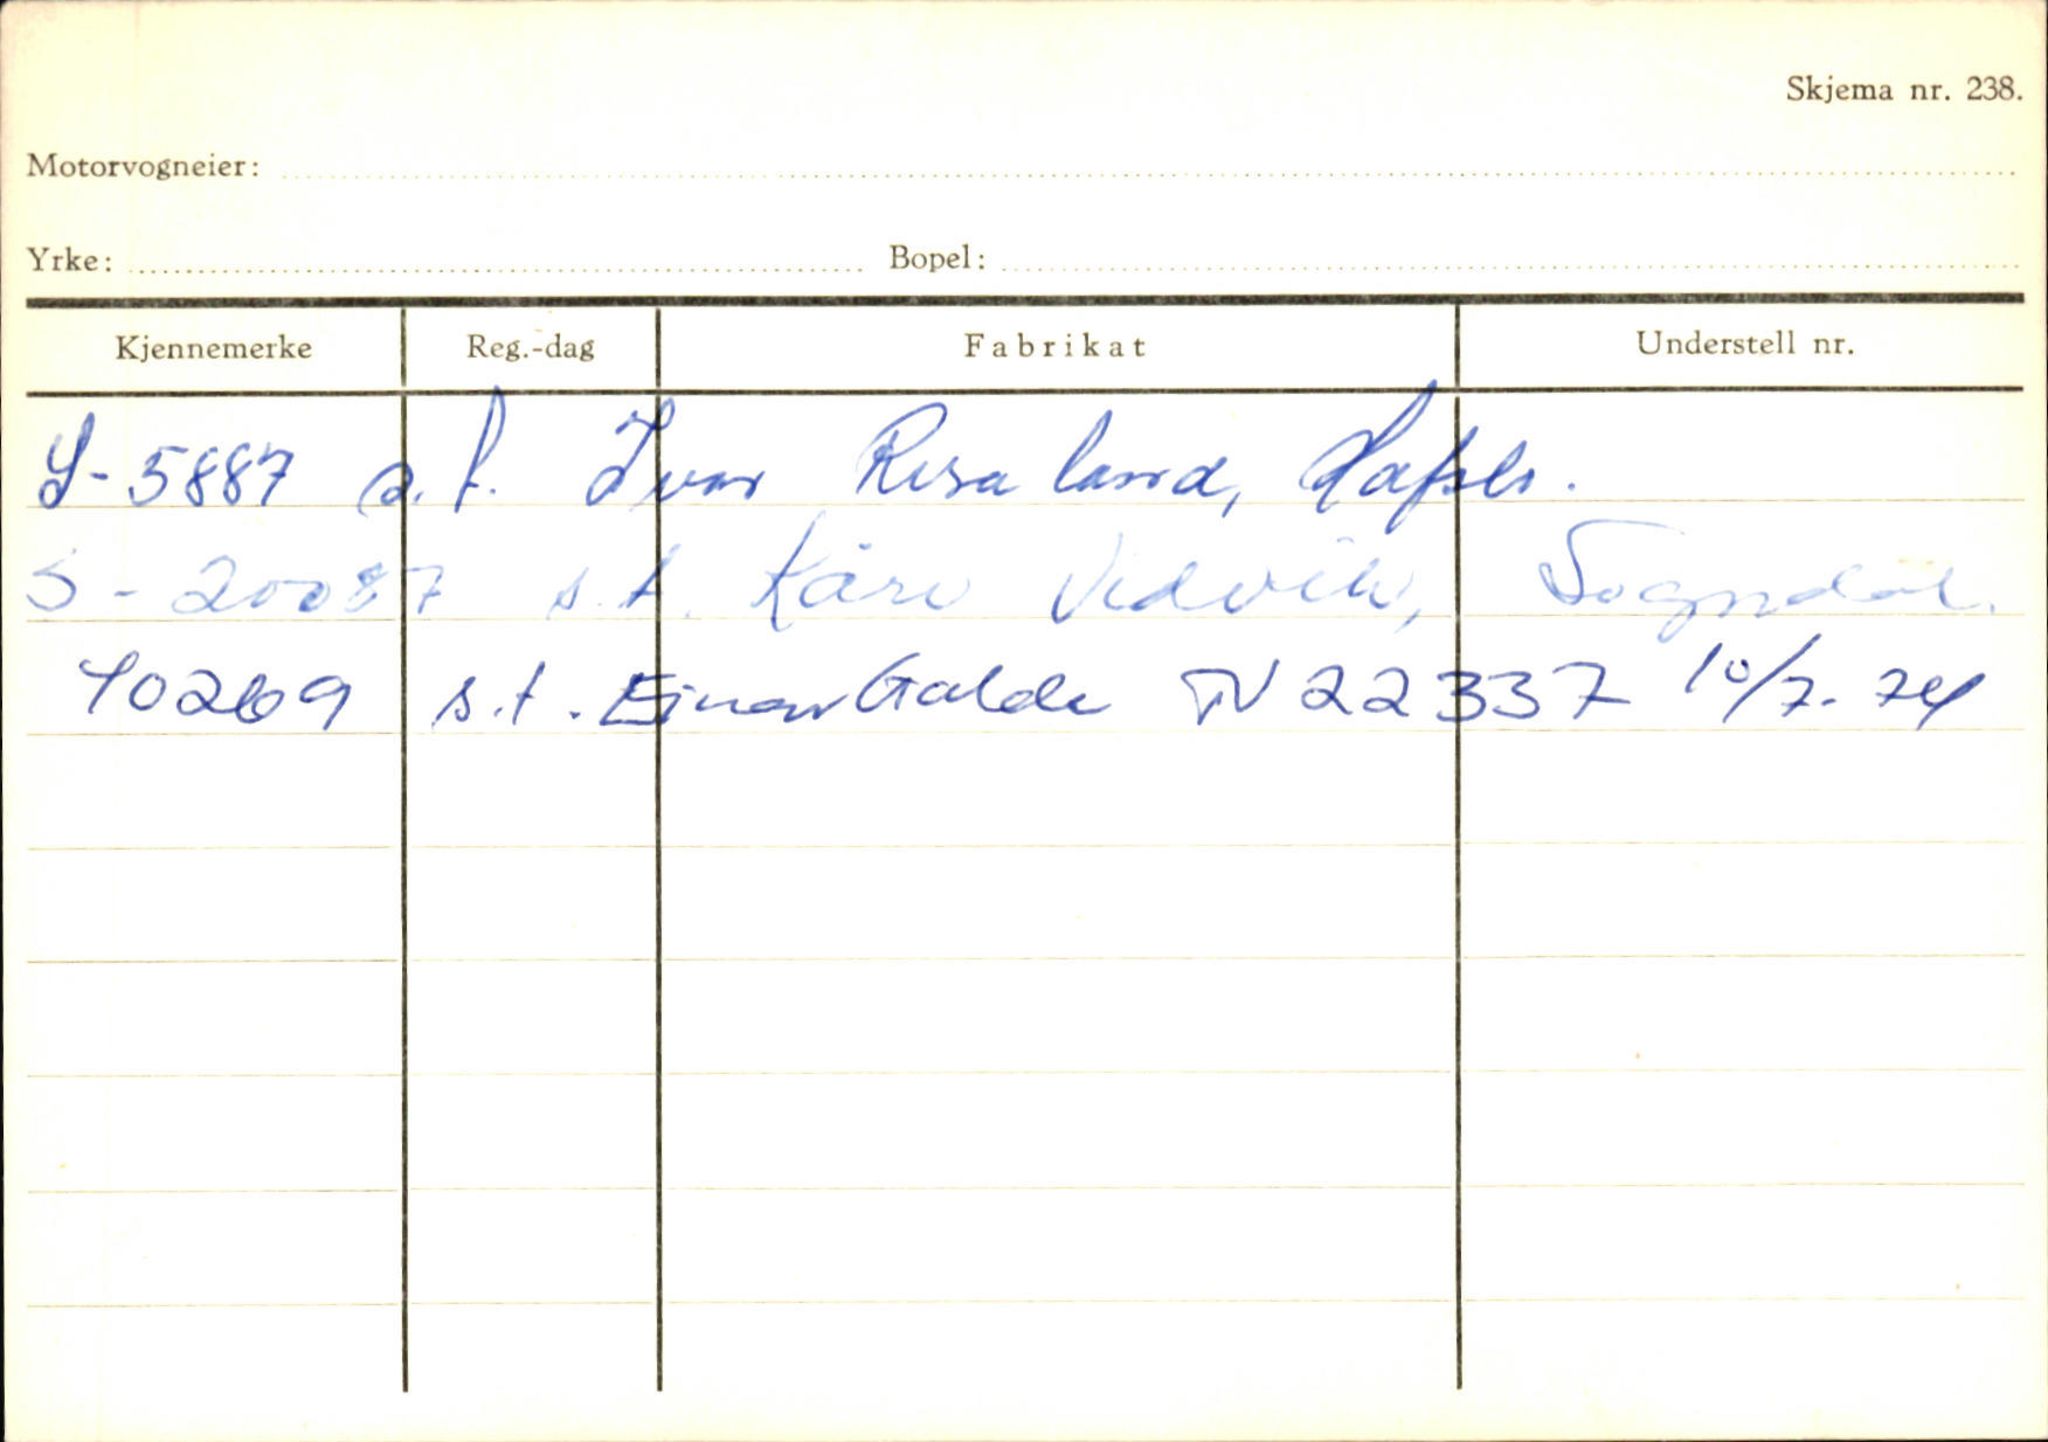 Skjema nr. 238.
Motorvogneier:
Yrke: Bopel:
Kjennemerke Reg.-dag Fabrikat Understell nr.
S-5887 s.t. Ivar Rusaland, Hafslo.
S-20087 s.t. Kåre Vedvik, Sogndal.
40269 s.t. Einar Galde TV 22337 10/7-74